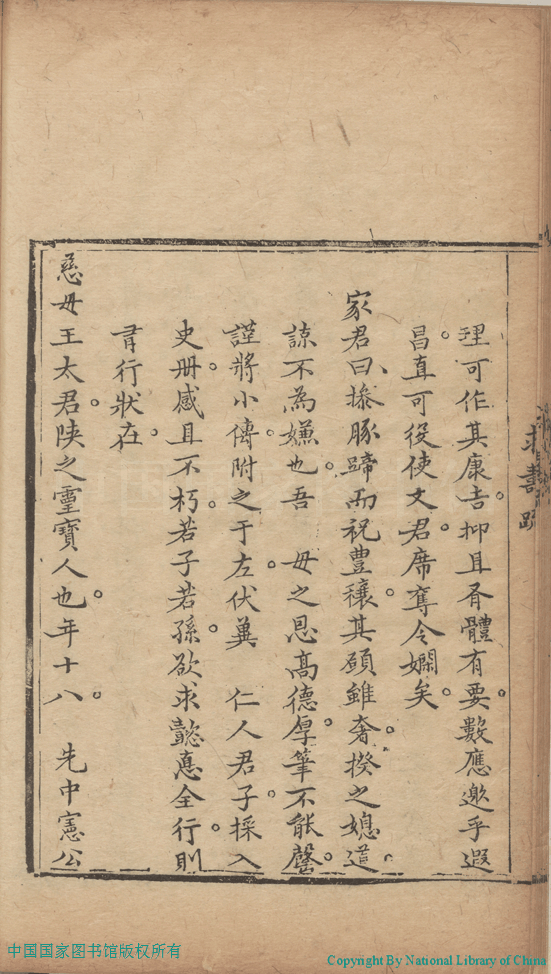 求壽䟽
理可作其康吉抑且胥體有要數應邀乎遐
昌直可役使文君席奪令嫻矣
家君曰操豚蹄而祝豊穰其頋雖奢揆之媳道
諒不為嫌也吾 毋之恩高德厚筆不能罄
謹將小傳附之于左伏兾 仁人君子採入
史册感且不朽若子若孫欲求懿悳全行則
有行狀在
慈毋王太君陕之靈寶人也年十八 先中憲公
中国国家图书馆版权所有
Copyright By National Library of China